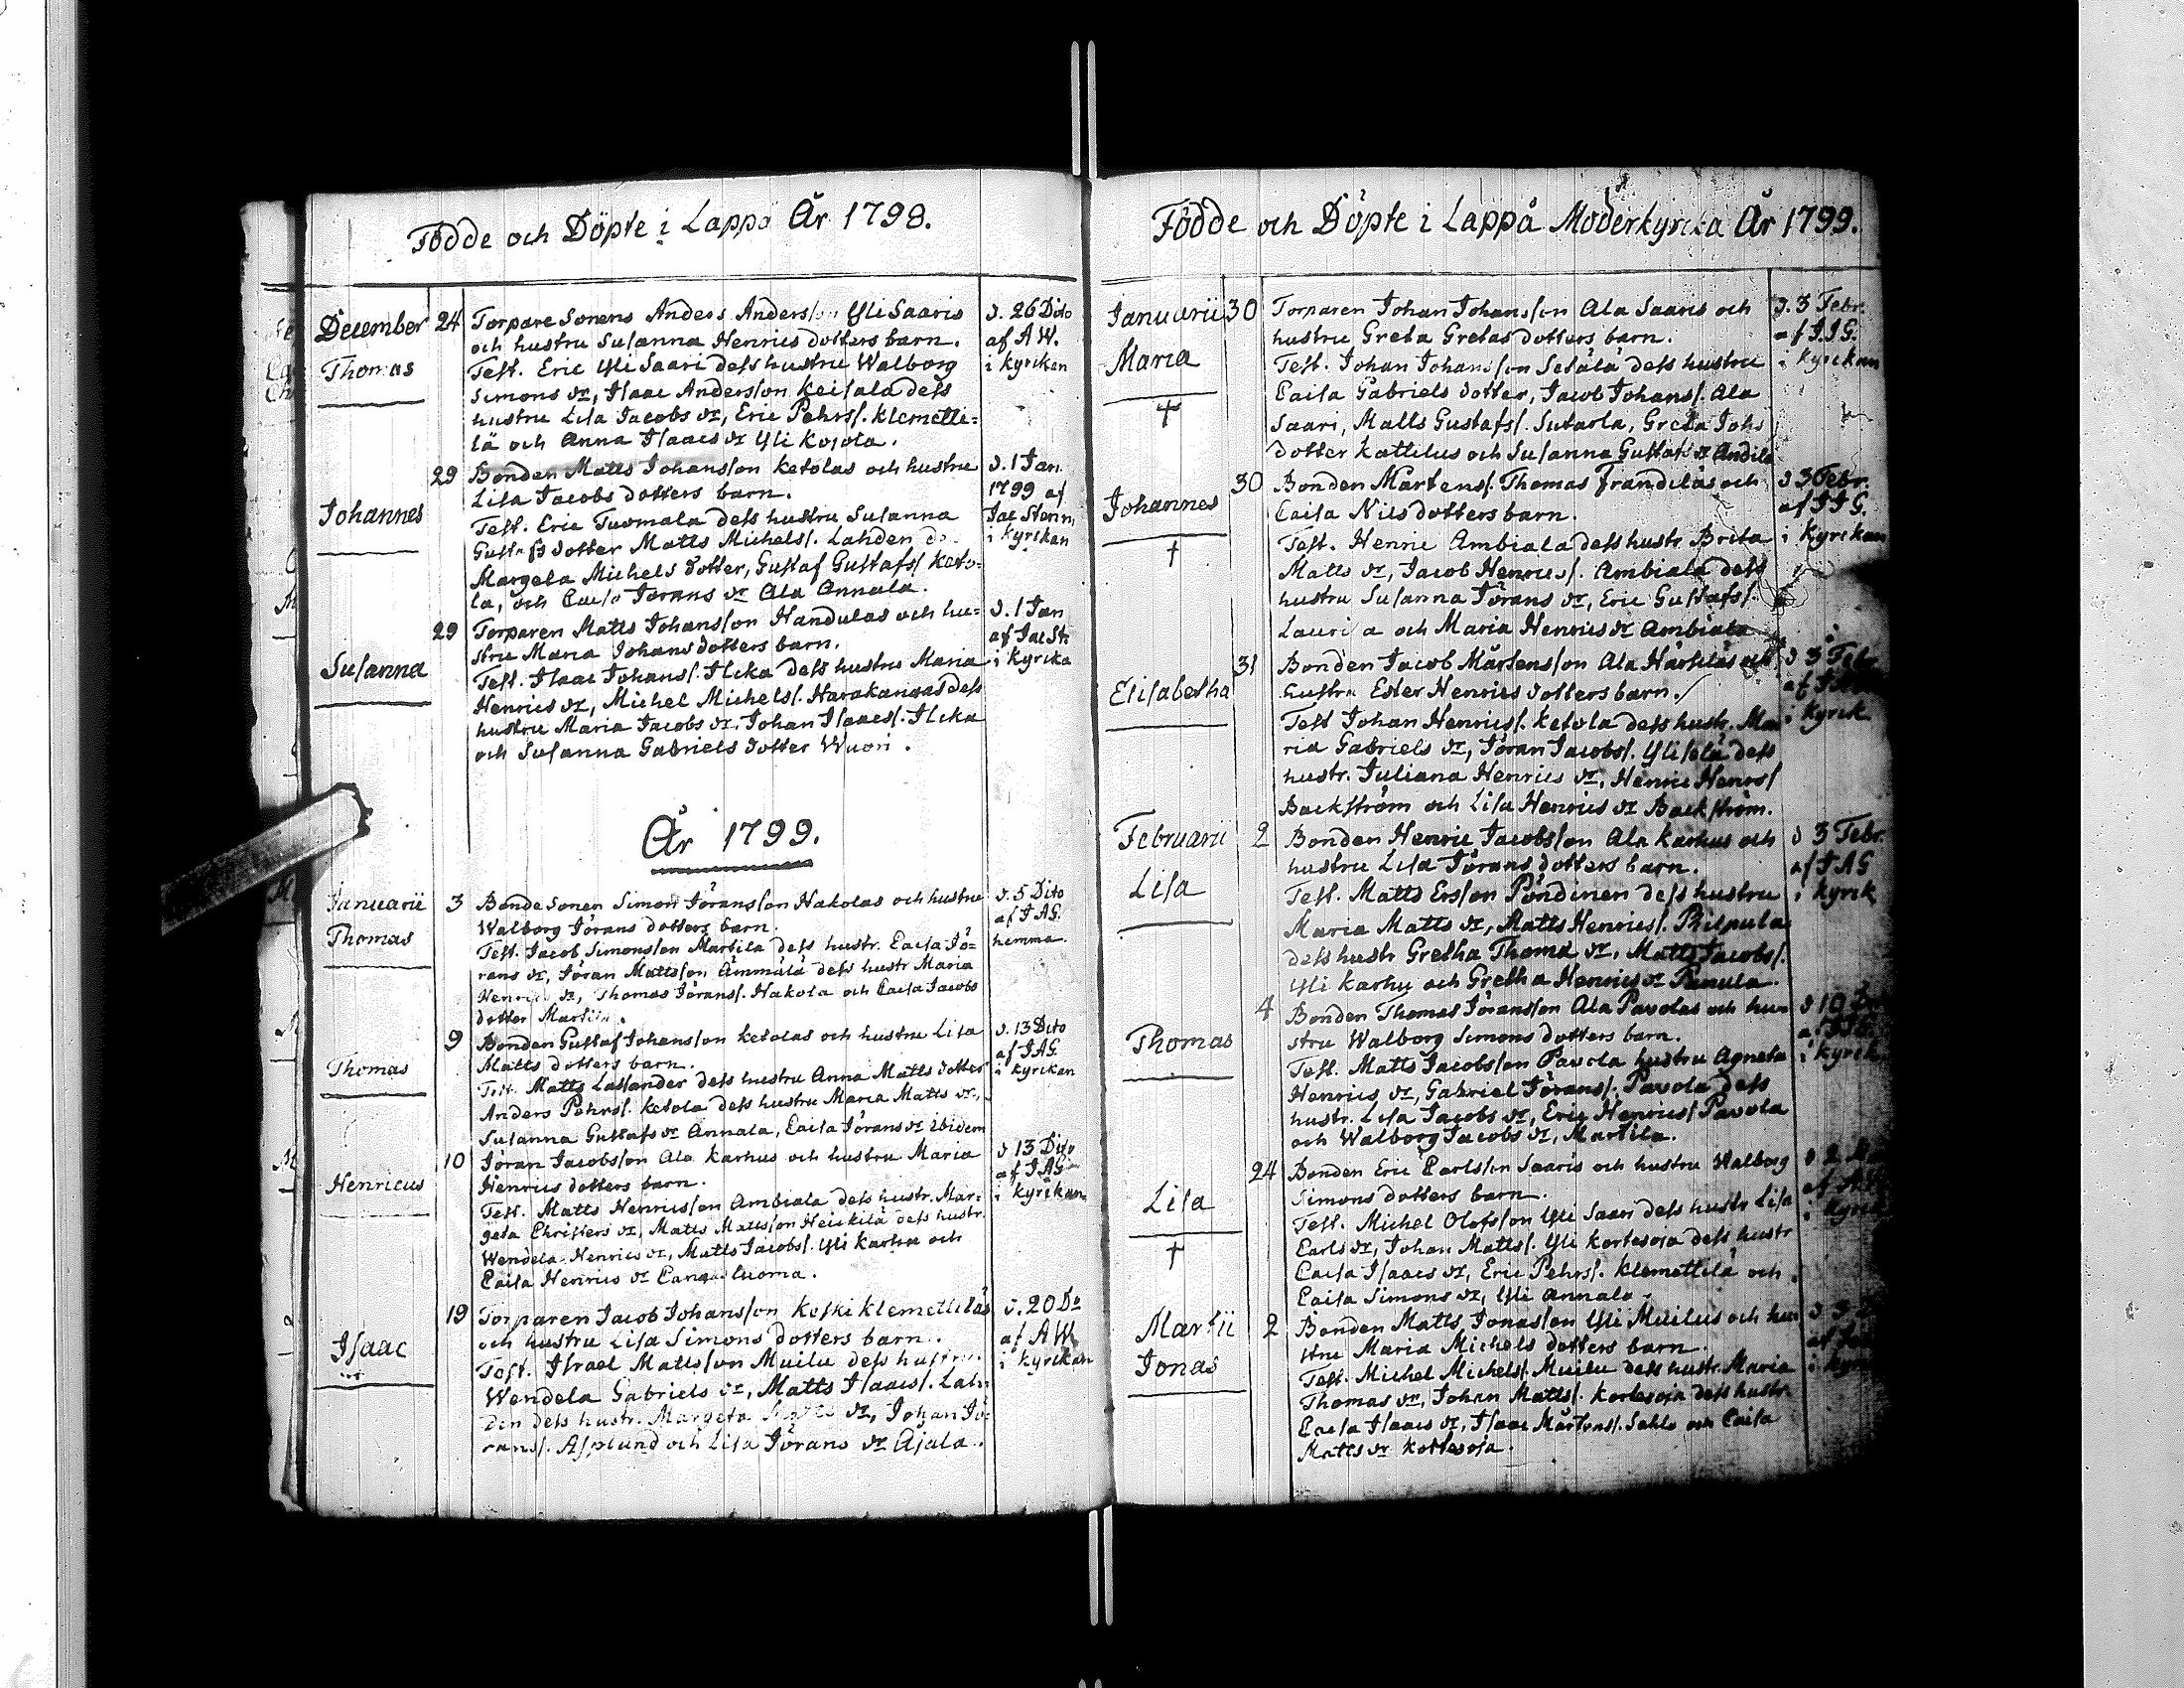 Födde och Döpte i Lappå År 1798.
December 24 Torpare Sonens Anders Andersson Yli Saaris d. 26 Dito
och hustru Susanna Henrics dotters barn. af A W.
Thomas Test. Eric Yli Saari dess hustru Walborg i kyrckan
Simons dr, Isaac Andersson Keisala dess
hustru Lisa Jacobs dr, Eric Pehrss. Klemetti=
lä och Anna Isaacs dr Yli Kojola.
29 Bonden Matts Johansson Ketolas och hustru d. 1 Jan.
Lisa Jacobs dotters barn. 1799 af
Johannes Test. Eric Tuomala dess hustru Susanna Jac Stenm.
Gustafs dotter Matts Michelss. Lahden i Kyrckan
Margeta Michels dotter, Gustaf Gustafss Keto=
la, och Caisa Jörans dr Ala Annala.
29 Torparen Matts Johansson Handulas och hu= d. 1 Jan
stru Maria Johans dotters barn. af Jac St
Susanna Test. Isaac Johanss. Ilcka dess hustru Maria i kyrcka
Henrics dr, Michel Michelss. Harakangas dess
hustru Maria Jacobs dr. Johan Isaacss. Ilcka
och Susanna Gabriels dotter Wuori.
År 1799.
Januarii 3 Bonde Sonen Simon Jöransson Hakolas och hustru d. 5 Dito
Walborg Jörans dotters barn. af JAG.
Thomas Test. Jacob Simonsson Martila dess hustr. Caisa Jö= hemma.
rans dr, Jöran Mattsson Ämmälä dess hustr Maria
Henrics dr, Thomas Jöranss. Hakola och Caisa Jacobs
dotter Martila.
9 Bonden Gustaf Johansson Ketolas och hustru Lisa d. 13 Dito
Matts dotters barn. af JAG.
Thomas Test. Matts Lassander dess hustru Anna Matts dotter i kyrckan
Anders Pehrss. Ketola dess hustru Maria Matts dr,
Susanna Gustafs dr Annala, Caisa Jörans dr ibidem
10 Jöran Jacobsson Ala Karhus och hustru Maria d 13 Dito
Henrics dotters barn. af JAG
Henricus Test. Matts Henricsson Ambiala dess hustr. Mar= i kyrckan
geta Christers dr, Matts Mattsson Heickilä dess hustr.
Wendela Henrics dr, Matts Jacobss. Yli Karhu och
Caisa Henrics dr Cangas luoma.
19 Torparen Jacob Johansson Koski Klemettiläs d. 20 Do
och hustru Lisa Simons dotters barn. af AW.
Isaac Test. Israel Mattsson Muilu dess hustru i kyrckan
Wendela Gabriels dr, Matts Isaacss. Lah=
den dess hustr. Margeta Matts dr, Johan Jö=
ranss. Asplund och Lisa Jörans dr Ojala.
Födde och Döpte i Lappå Moderkyrcka År 1799.
Januarii 30 Torparen Johan Johansson Ala Saaris och d. 3 Febr.
hustru Greta Gretas dotters barn. af J.J.G.
Maria Test. Johan Johansson Setälä dess hustru i Kyrckan
† Caisa Gabriels dotter, Jacob Johanss. Ala
Saari, Matts Gustafss. Sutarla, Greta Johs
dotter Kattilus och Susanna Gustafs dr Andila
30 Bonden Mårtenss. Thomas Frandiläs och d 3 Febr.
Johannes Caisa Nils dotters barn. af JJG.
† Test. Henric Ambiala dess hustr. Brita i Kyrckan
Matts dr, Jacob Henricss. Ambiala dess
hustru Susanna Jörans dr, Eric Gustafss.
Laurila och Maria Henrics dr Ambiala
31 Bonden Jacob Mårtensson Ala Härsiläs och d 3 Febr
Elisabetha hustru Ester Henrics dotters barn.
Test Johan Henricss. Ketola dess hustr. Ma= i Kyrck
ria Gabriels dr, Jöran Jacobss. Ylisela dess
hustr. Juliana Henrics dr, Henric Henrss
Backström och Lisa Henrics dr Backström.
Februarii 2 Bonden Henric Jacobsson Ala Karhus och d 3 Febr.
hustru Lisa Jörans dotters barn. af JAG
Lisa Test. Matts Ersson Pöndinen dess hustru i Kyrck
Maria Matts dr, Matts Henricss. Pilspula
dess hustr Gretha Thoma dr, Matts Jacobss.
Yli Karhu och Gretha Henrics dr Panula.
4 Bonden Thomas Jöransson Ala Pavolas och hu= d 10
Thomas stru Walborg Simons dotters barn.
Test. Matts Jacobsson Pavola hustru Agneta i kyrck
Henrics dr, Gabriel Jöranss. Pavola dess
hustr. Lisa Jacobs dr, Eric Henricss Pavola
och Walborg Jacobs dr, Martila.
24 Bonden Eric Carlsson Saaris och hustru Walborg d 2
Lisa Simons dotters barn.
Test. Michel Olofsson Yli Saari dess hustr Lisa i kyrck
† Carls dr, Johan Mattss. Yli Kortesoja dess hustr
Caisa Isaacs dr, Eric Pehrss. Klemettilä och
Caisa Simons dr, Yli Annala.
Martii 2 Bonden Matts Jonasson Yli Muilus och hu=
stru Maria Michels dotters barn.
Jonas Test. Michel Michelss. Muilu dess hustr. Maria
Thomas dr, Johan Mattss. Kortesoja dess hustr.
Caisa Isaacs dr, Isaac Mårtenss. Sahlo och Caisa
Matts dr Kortesoja.